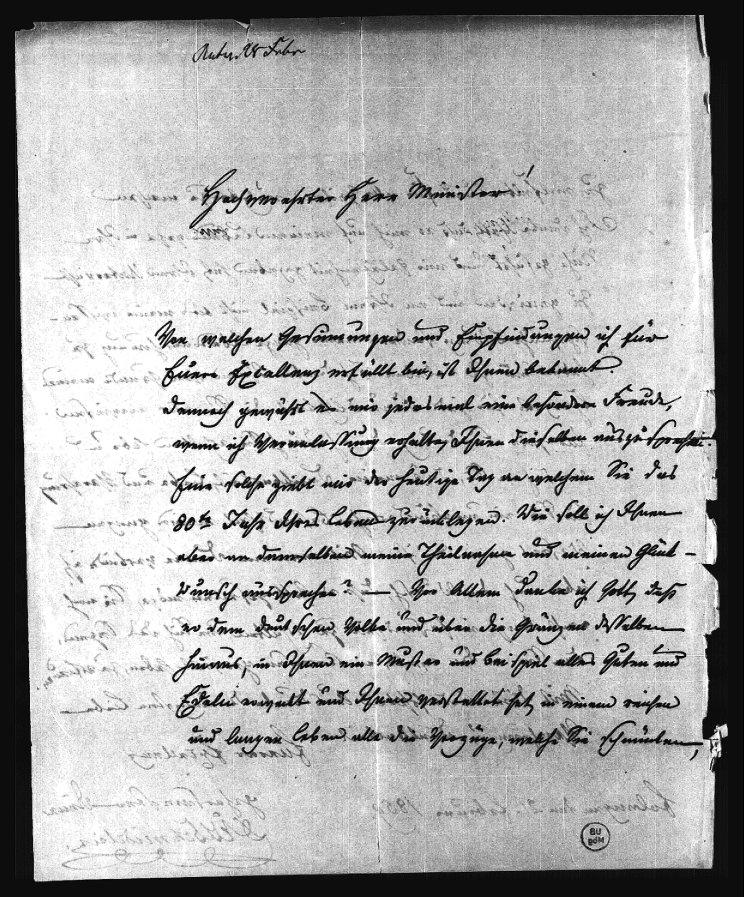 Antw. 28 Febr
Hochverehrter Herr Minister!
Von welchen Gesinnungen und Empfindungen ich für
Euere Excellenz erfüllt bin, ist Ihnen bekannt.
Dennoch gewährt es mir jedesmal eine besondere Freude,
wenn ich Veranlassung erhalte, Ihnen dieselben auszusprechen.
Eine solche giebt mir der heutige Tag an welchem Sie das
80te Jahr Ihres Lebens zurücklegen. Wie soll ich Ihnen
aber an demselben meine Theilnahme und meinen Glück-
wunsch aussprechen? — Vor Allem danke ich Gott, daß
er dem deutschen Volke und über die Gränzen desselben
hinaus, in Ihnen ein Muster und Beispiel alles Guten und
Edeln erweckt und Ihnen verstattet hat, in einem reichen
und langen Leben alle die Vorzüge, welche Sie schmücken,
BU
MÜB